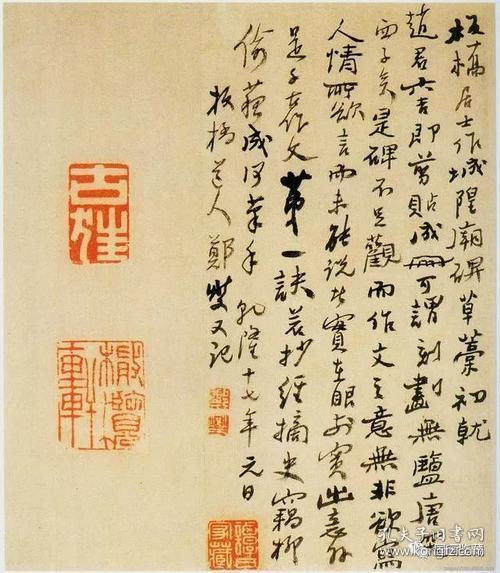 板橋居士作城隍廟碑草藁初就
趙君六吉即剪貼成冊可謂刻畫無鹽唐突
西子矣是碑不足觀而作文之意無非欲寫
人情所欲言而未能說者實在眼前實出意外
是千古作文第一訣若抄經摘史竊柳
偷蘇成何筆手乾隆十七年元日
板橋道人鄭燮又記
鄭燮
孔夫子旧书网